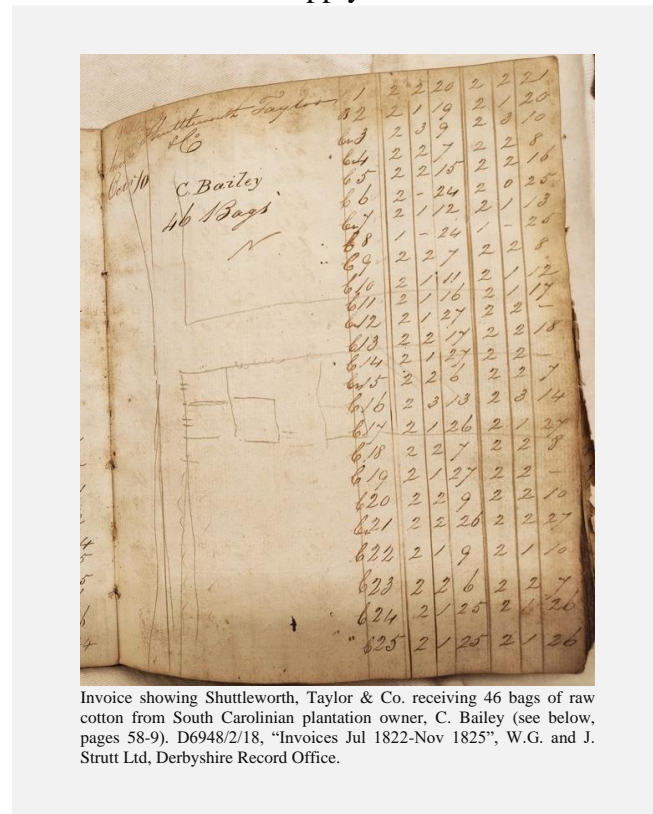 Shuttleworth Taylor 1 2 2 20 2 2 21
& Co 2 2 1 19 2 1 20
3 2 3 9 2 3 10
Oct 10 4 2 2 7 2 2 8
C. Bailey 5 2 2 15 2 2 16
46 Bags 6 2 - 24 2 0 25
7 2 1 12 2 1 13
8 1 - 24 1 - 25
9 2 2 7 2 2 8
10 2 1 11 2 1 12
11 2 1 16 2 1 17
12 2 1 27 2 2 -
13 2 2 17 2 2 18
14 2 1 27 2 2 -
15 2 2 6 2 2 7
16 2 3 13 2 3 14
17 2 1 26 2 1 27
18 2 2 7 2 2 8
19 2 1 27 2 2 -
20 2 2 9 2 2 10
21 2 2 26 2 2 27
22 2 1 9 2 1 10
23 2 2 6 2 2 7
24 2 1 25 2 26
25 2 1 25 2 1 26
Invoice showing Shuttleworth, Taylor & Co. receiving 46 bags of raw
cotton from South Carolinian plantation owner, C. Bailey (see below,
pages 58-9). D6948/2/18, “Invoices Jul 1822-Nov 1825”, W.G. and J.
Strutt Ltd, Derbyshire Record Office.